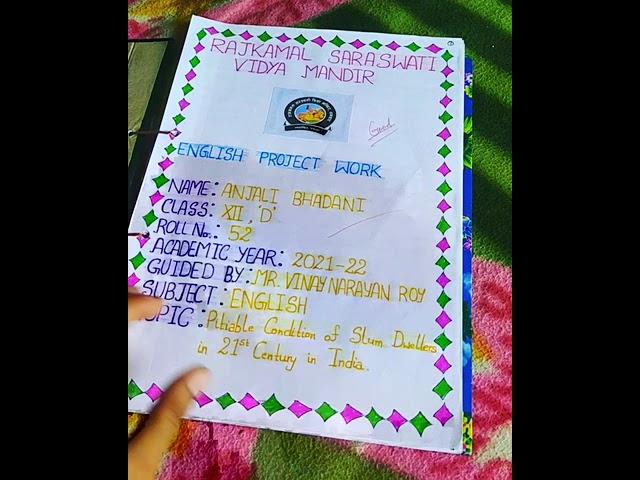 RAJKAMAL SARASWATI
VIDYA MANDIR
Good
ENGLISH PROJECT WORK
NAME: ANJALI BHADANI
CLASS: XII, 'D'
ROLL No.: 52
ACADEMIC YEAR: 2021-22
GUIDED BY: MR. VINAY NARAYAN ROY
SUBJECT: ENGLISH
TOPIC: Pitiable Condition of Slum Dwellers
in 21st Century in India.